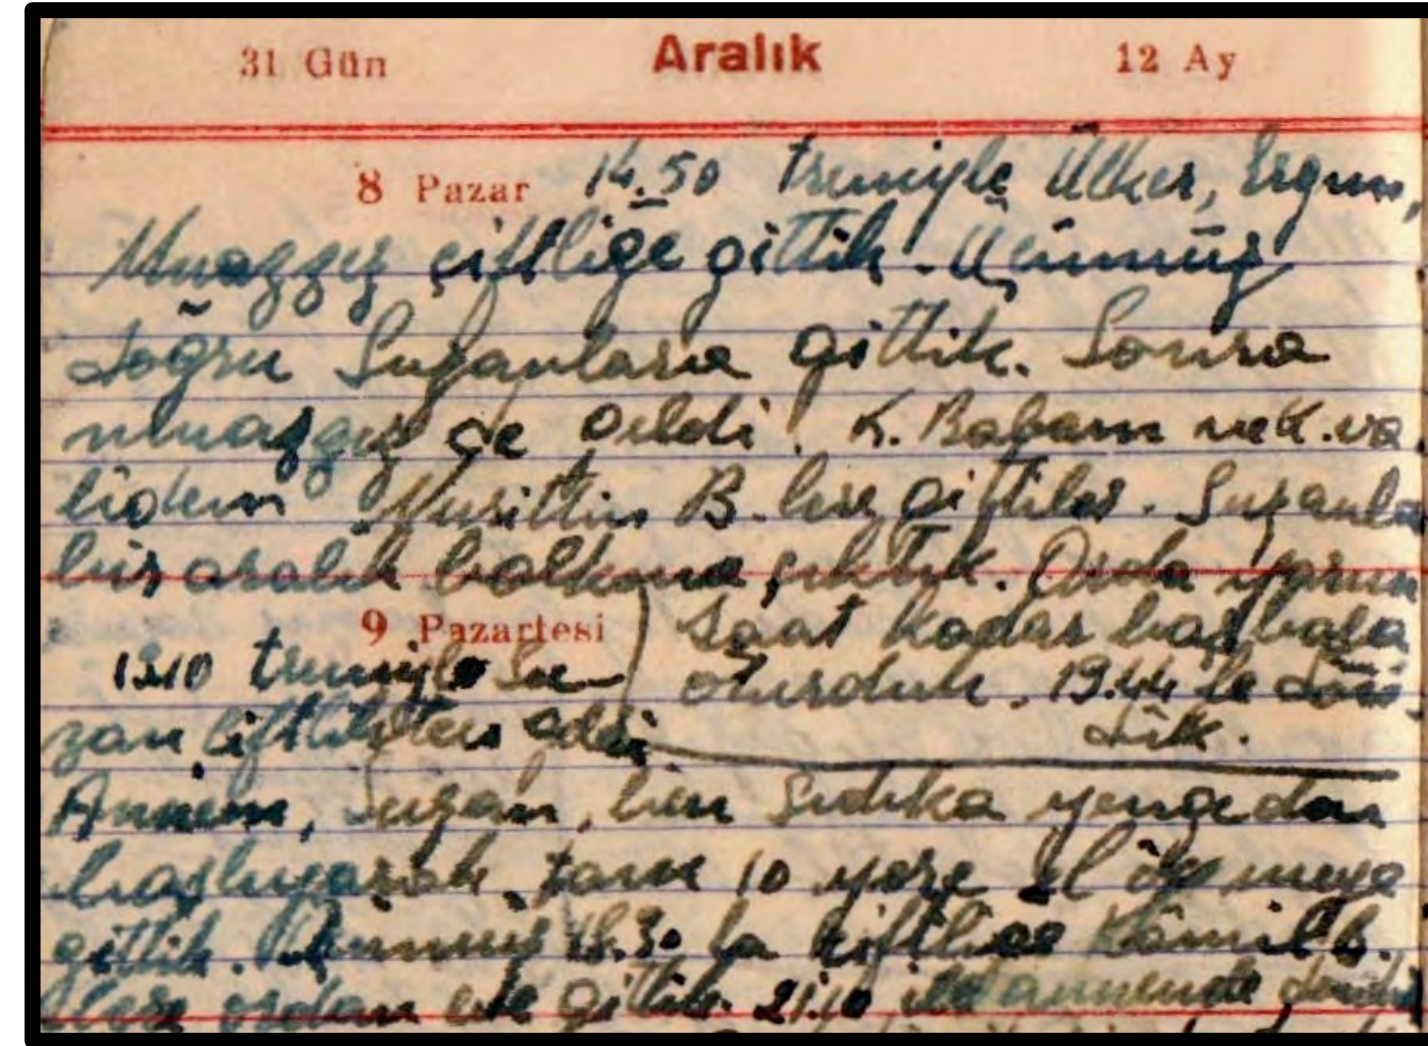 31 Gün Aralık 12 Ay
8 Pazar 14.50 treniyle Ülker, Ergun,
Muazzez çiftliğe gittik. Üçümüz
doğru Suzanlara gittik. Sonra
muazzez de geldi. K. Babam ve K. va
lidem Nurittin B. lere gittiler. Suzanla
bir aralık balkona çıktık. Orda yarım
saat kadar başbaşa
oturduk. 19.44 le dön
dük.
9 Pazartesi
13.10 treniyle Su
zan çiftlikten geldi
Annem, Suzan, ben Sıdıka yengeden
başlıyarak tam 10 yere el öpmeye
gittik. 18.30 la çiftliğe Kâmil b.
lere ordan eve gittik. 21.10 annemle